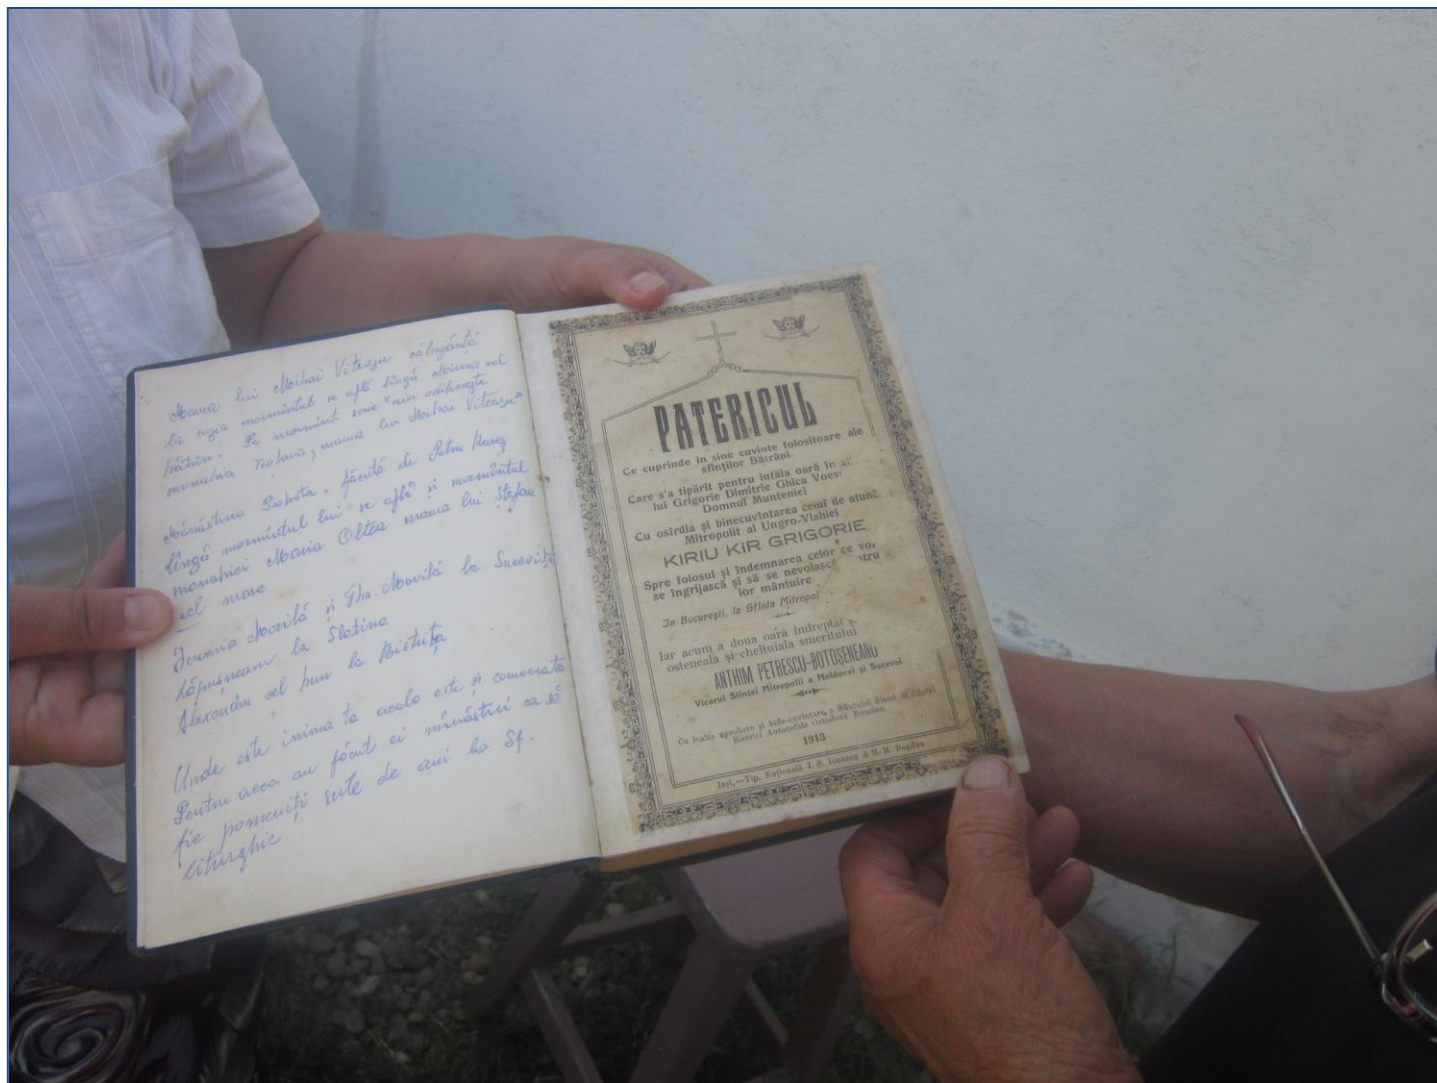 Mama lui Mihai Viteazu călugăriță
la cozia mormîntul se află lîngă Mircea cel
bătrîn. Pe mormînt scrie "aici odihnește
monahia Teofana, mama lui Mihai Viteazu"
Mănăstirea Probota. făcută de Petru Rareș
lîngă mormîntul lui se află și mormîntul
monahiei Maria Oltea mama lui Ștefan
cel mare
Ieremia Movilă și Ghe. Movilă la Sucevița
Lăpușneanu la Slatina
Alexandru cel bun la Bistrița
Unde este inima ta acolo este și comoara ta
Pentru aceea au făcut ei mînăstiri ca să
fie pomeniți sute de ani la Sf.
Liturghie
PATERICUL
Ce cuprinde in sine cuvinte folositoare ale
sfinților Bătrâni.
Care s'a tipărit pentru intâia oară în
lui Grigorie Dimitrie Ghica Voev
Domnul Munteniei
Cu osîrdia și binecuvîntarea celui de atunc
Mitropolit al Ungro-Vlahiei
KIRIU KIR GRIGORIE
Spre folosul și îndemnarea celor ce vo
se îngrijască și să se nevoiască
lor mântuire
In București, la Sfînta Mitropol
Iar acum a doua oară îndreptat
osteneala și cheltuiala smeritului
ANTHIM PETRESCU-BOTOȘENEANU
Vicarul Sfintei Mitropolii a Moldovei și Sucevei
Cu inalta aprobare și bine-cuvintare a Sfîntului Sinod al Sfintei
Biserici Autocefale Ortodoxe Române.
1913
Iași,—Tip. Națională I. S. Ionescu & M. M. Bogdan